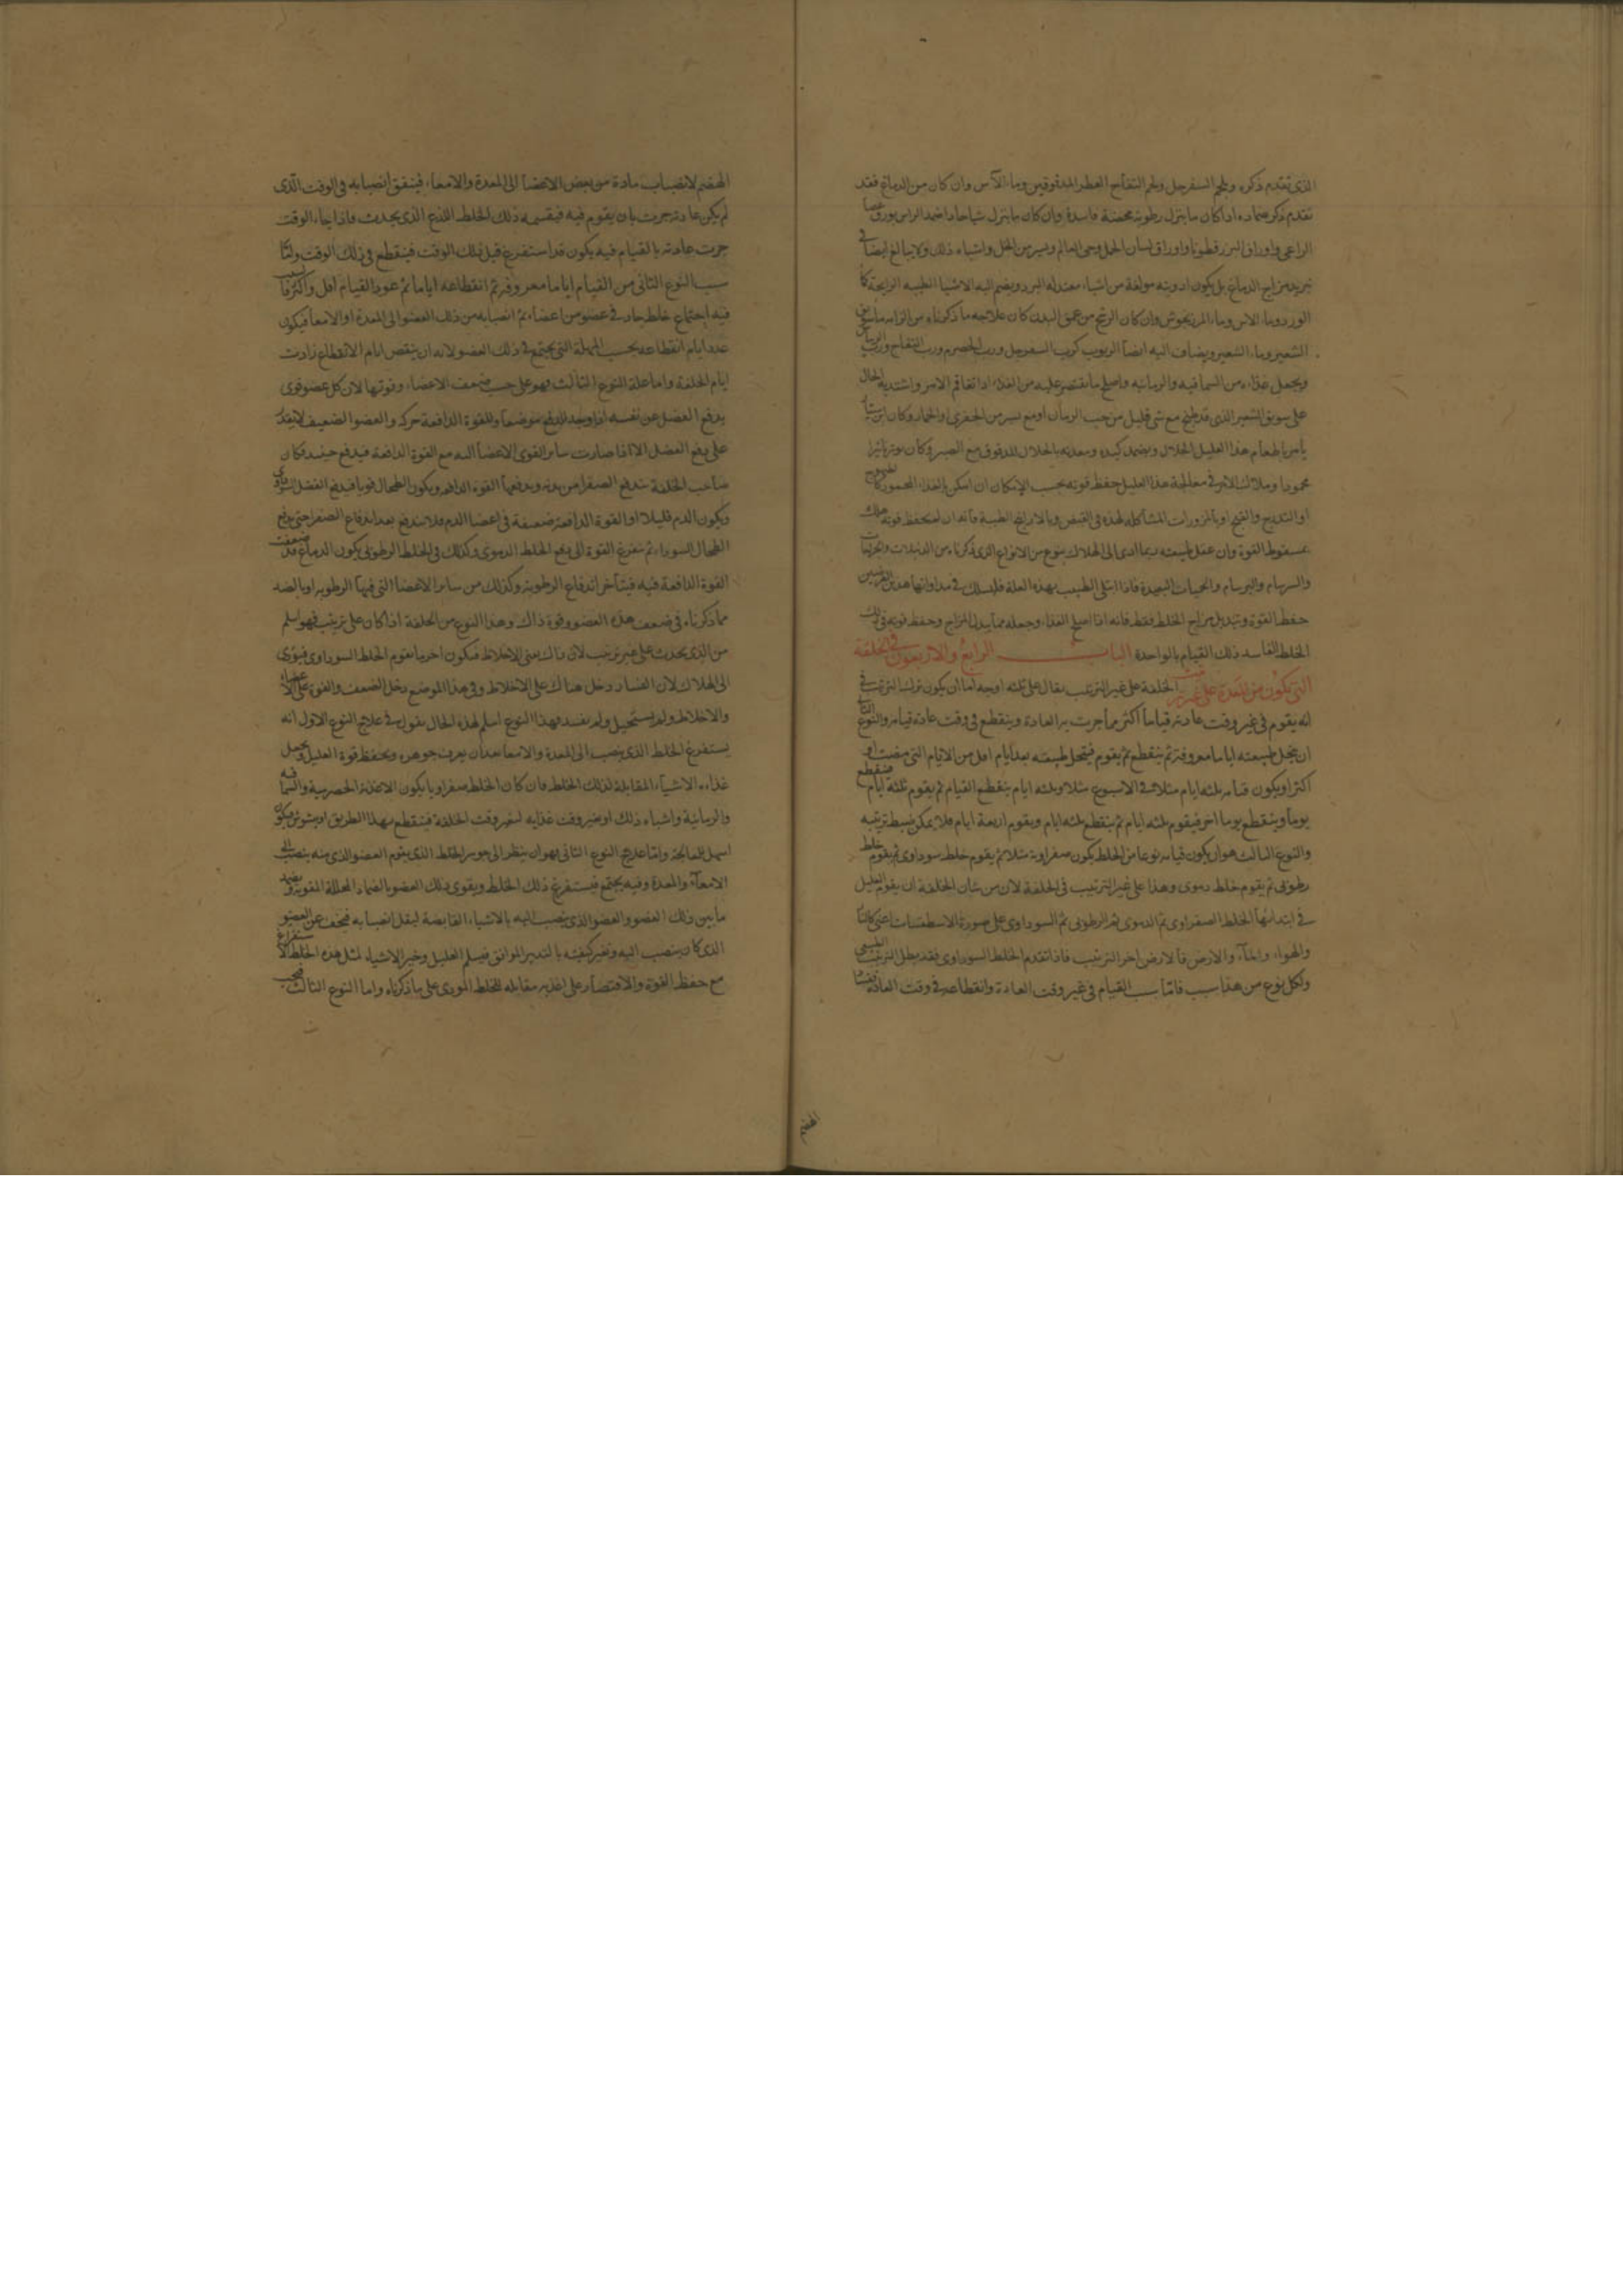 الذى تقدم ذكره وبلحم السفرجل ولحم التفاح العطر المدقوقين وماء الآس وان كان من الدماغ فقد
تقدم ذكر ضماده اذا كان ما ينزل رطوبة محضة فاسدة وان كان ما ينزل شيا حادا ضمد الراس بورق عصا
الراعى واوراق البزرقطونا واوراق لسان الحمل وحى العالم ويسير من الخل واشباه ذلك ولا يبالغ ايضا فى
تبريد مزاج الدماغ بل يكون ادويته مولفة من اشياء معتدلة البرد ويضم اليه الاشيا الطيبه الرايحة كما
الورد وماء الاس وماء المرزنجوش وان كان الرشح من عمق البدن كان علاجه ما ذكرناه من
الشعير وماء الشعير ويضاف اليه ايضا الربوب كرب السفرجل ورب الحصرم ورب التفاح ورب
ويجعل غذاءه من السماقيه والرمانيه واصلح ما يقتصر عليه من الغذاء اذا تفاقم الامر واشتد به الحال
على سويق الشعير الذى قد طبخ مع شى قليل من حب الرمان او مع يسير من
يامر باطعام هذا العليل الخلال ويضمد كبده ومعدته بالخلال المدقوق مع الصبر وكان يوثر تاثيرا
محمودا وملاك الامر فى معالجة هذا العليل حفظ قوته بحسب الامكان ان امكن بالغذاء المحمود
او التدرج والقبج او بالمزورات المشاكله لهذه فى القبض وبالاراييح الطيبة فانه ان لم يحفظ قوته هلك
بسقوط القوة وان عقل طبيعته ربما ادى الى الهلاك بنوع من الانواع الذى ذكرناه من
والسرسام والبرسام والحميات البعيدة فاذا ابتلى الطبيب بهذه العلة فليسلك فى مداواتها هذين الغرضين
حفظ القوة وتبديل مزاج الخلط فقط فانه اذا اصلح الغذاء وجعله مما يبدل المزاج وحفظ قوته
الخلط الفاسد ذلك القيام بالواحدة الباب الرابع والاربعون فى الخلفة
التى تكون من المعدة على غير ترتيب الخلفة على غير الترتيب يقال على ثلثه اوجه اما ان يكون ترك الترتيب فى
انه يقوم فى غير وقت عادته قياما اكثر مما جرت به العادة وينقطع فى وقت عادة قيامه والنوع الثانى
ان يحل طبيعته اياما معروفة ثم ينقطع ثم يقوم فيحل طبيعته بعد ايام اقل من الايام التى مضت او
اكثر او يكون قيامه ثلثه ايام مثلا فى الاسبوع مثلا وثلثه ايام ينقطع القيام ثم يقوم ثلثه ايام فينقطع
يوما وينقطع يوما اخر فيقوم ثلثه ايام ثم ينقطع ثلثه ايام ويقوم اربعة ايام فلا يمكن ضبط ترتيبه
والنوع الثالث هو ان يكون قيامه نوعا من الخلط يكون صفراويه مثلا ثم يقوم خلط سوداوى ثم يقوم خلط
رطوبى ثم يقوم خلط دموى وهذا على غير الترتيب فى الخلفة لان من شان الخلفة ان يقوم العليل
فى ابتدائها الخلط الصفراوى ثم الدموى ثم الرطوبى ثم السوداوى على صورة الاسطقسات اعنى كالنار
والهواء والماء والارض فالارض اخر الترتيب فاذا تقدم الخلط السوداوى فقد بطل الترتيب الطبيعى
ولكل نوع من هذا سبب فاما سبب القيام فى غير وقت العادة وانقطاعه فى وقت العادة
الهضم
الهضم لانصباب مادة من بعض الاعضا الى المعدة والامعاء فيتفق انصبابه فى الوقت الذى
لم يكن عادته جرت بان يقوم فيه فيقيمه ذلك الخلط اللذع الذى يحدث فاذا جاء الوقت
جرت عادته بالقيام فيه يكون قد استفرغ قبل ذلك الوقت فينقطع فى ذلك الوقت واما
سبب النوع الثانى من القيام اياما معروفة ثم انقطاعه اياما ثم عود القيام اقل واكثر
فيه اجتماع خلط حاد فى عضو من اعضاءه ثم انصبابه من ذلك العضو الى المعدة او الامعا فيكون
عدد ايام انقطاعه بحسب المهلة التى يجتمع فى ذلك العضو لانه ان ينقص ايام الانقطاع زادت
ايام الخلفة واما علة النوع الثالث فهو على حسب ضعف الاعضاء وقوتها لان كل عضو قوى
يدفع الفضل عن نفسه اذا وجد للدفع موضعا وللقوة الدافعة حركه والعضو الضعيف لا يقدر
على دفع الفضل الا اذا صارت ساير القوى الاعضا اليه مع القوة الدافعة فيدفع حينيذ فكان
صاحب الخلفة يندفع الصفرا من بدنه ويدفعها القوه الدافعه ويكون الطحال قويا فيدفع الفضل السوداوى
ويكون الدم قليلا او القوة الدافعة ضعيفة فى اعضا الدم فلا يندفع بعد اندفاع الصفرا حتى يدفع
الطحال السوداء ثم يتفرغ القوة الى دفع الخلط الدموى وكذلك فى الخلط الرطوبى يكون الدماغ قد ضعفت
القوة الدافعة فيه فيتاخر اندفاع الرطوبة وكذلك من ساير الاعضا التى فيها الرطوبه او بالضد
مما ذكرناه فى ضعف هذه العضو وقوة ذاك وهذا النوع من الخلفة اذا كان على ترتيب فهو اسلم
من الذى يحدث على غير ترتيب لان ذاك يعنى الاخلاط فيكون اخر ما يقوم الخلط السوداوى فيودى
الى الهلاك لان الفساد دخل هناك على الاخلاط وفى هذا الموضع دخل الضعف والقوة على الاعضاء
والاخلاط ولم يستحيل ولم يفسد فهذا النوع اسلم لهذه الحال نقول فى علاج النوع الاول انه
يستفرغ الخلط الذى ينصب الى المعدة والامعا بعد ان يعرف جوهره ويحفظ قوة العليل ويجعل
غذاءه الاشياء المقابلة لذلك الخلط فان كان الخلط صفراويا يكون الاغذية الحصرمية والسماقيه
والرمانية واشباه ذلك او بغير وقت غذايه لتغير وقت الخلفة فينقطع بهذا الطريق او يشوش فيكون
اسهل للمعالجة واما علاج النوع الثانى فهو ان ينظر الى جوهر الخلط الذى يقوم العضو الذى منه ينصب الى
الامعاء والمعدة وفيه يجتمع فيستفرغ ذلك الخلط ويقوى ذلك العضو بالضماد المحللة المقويه ويضمد
ما بين ذلك العضو والعضو الذى ينصب اليه بالاشياء القابضة ليقل انصبابه فيخف عن العضو
الذى كان ينصب اليه وتغير كيفيته بالتدبير الموافق فيسلم العليل وخير الاشياء لمثل هذه الخلط الاستفراغ
مع حفظ القوة والاقتصار على اغذيه مقابله للخلط الموذى على ما ذكرناه واما النوع الثالث فيجب